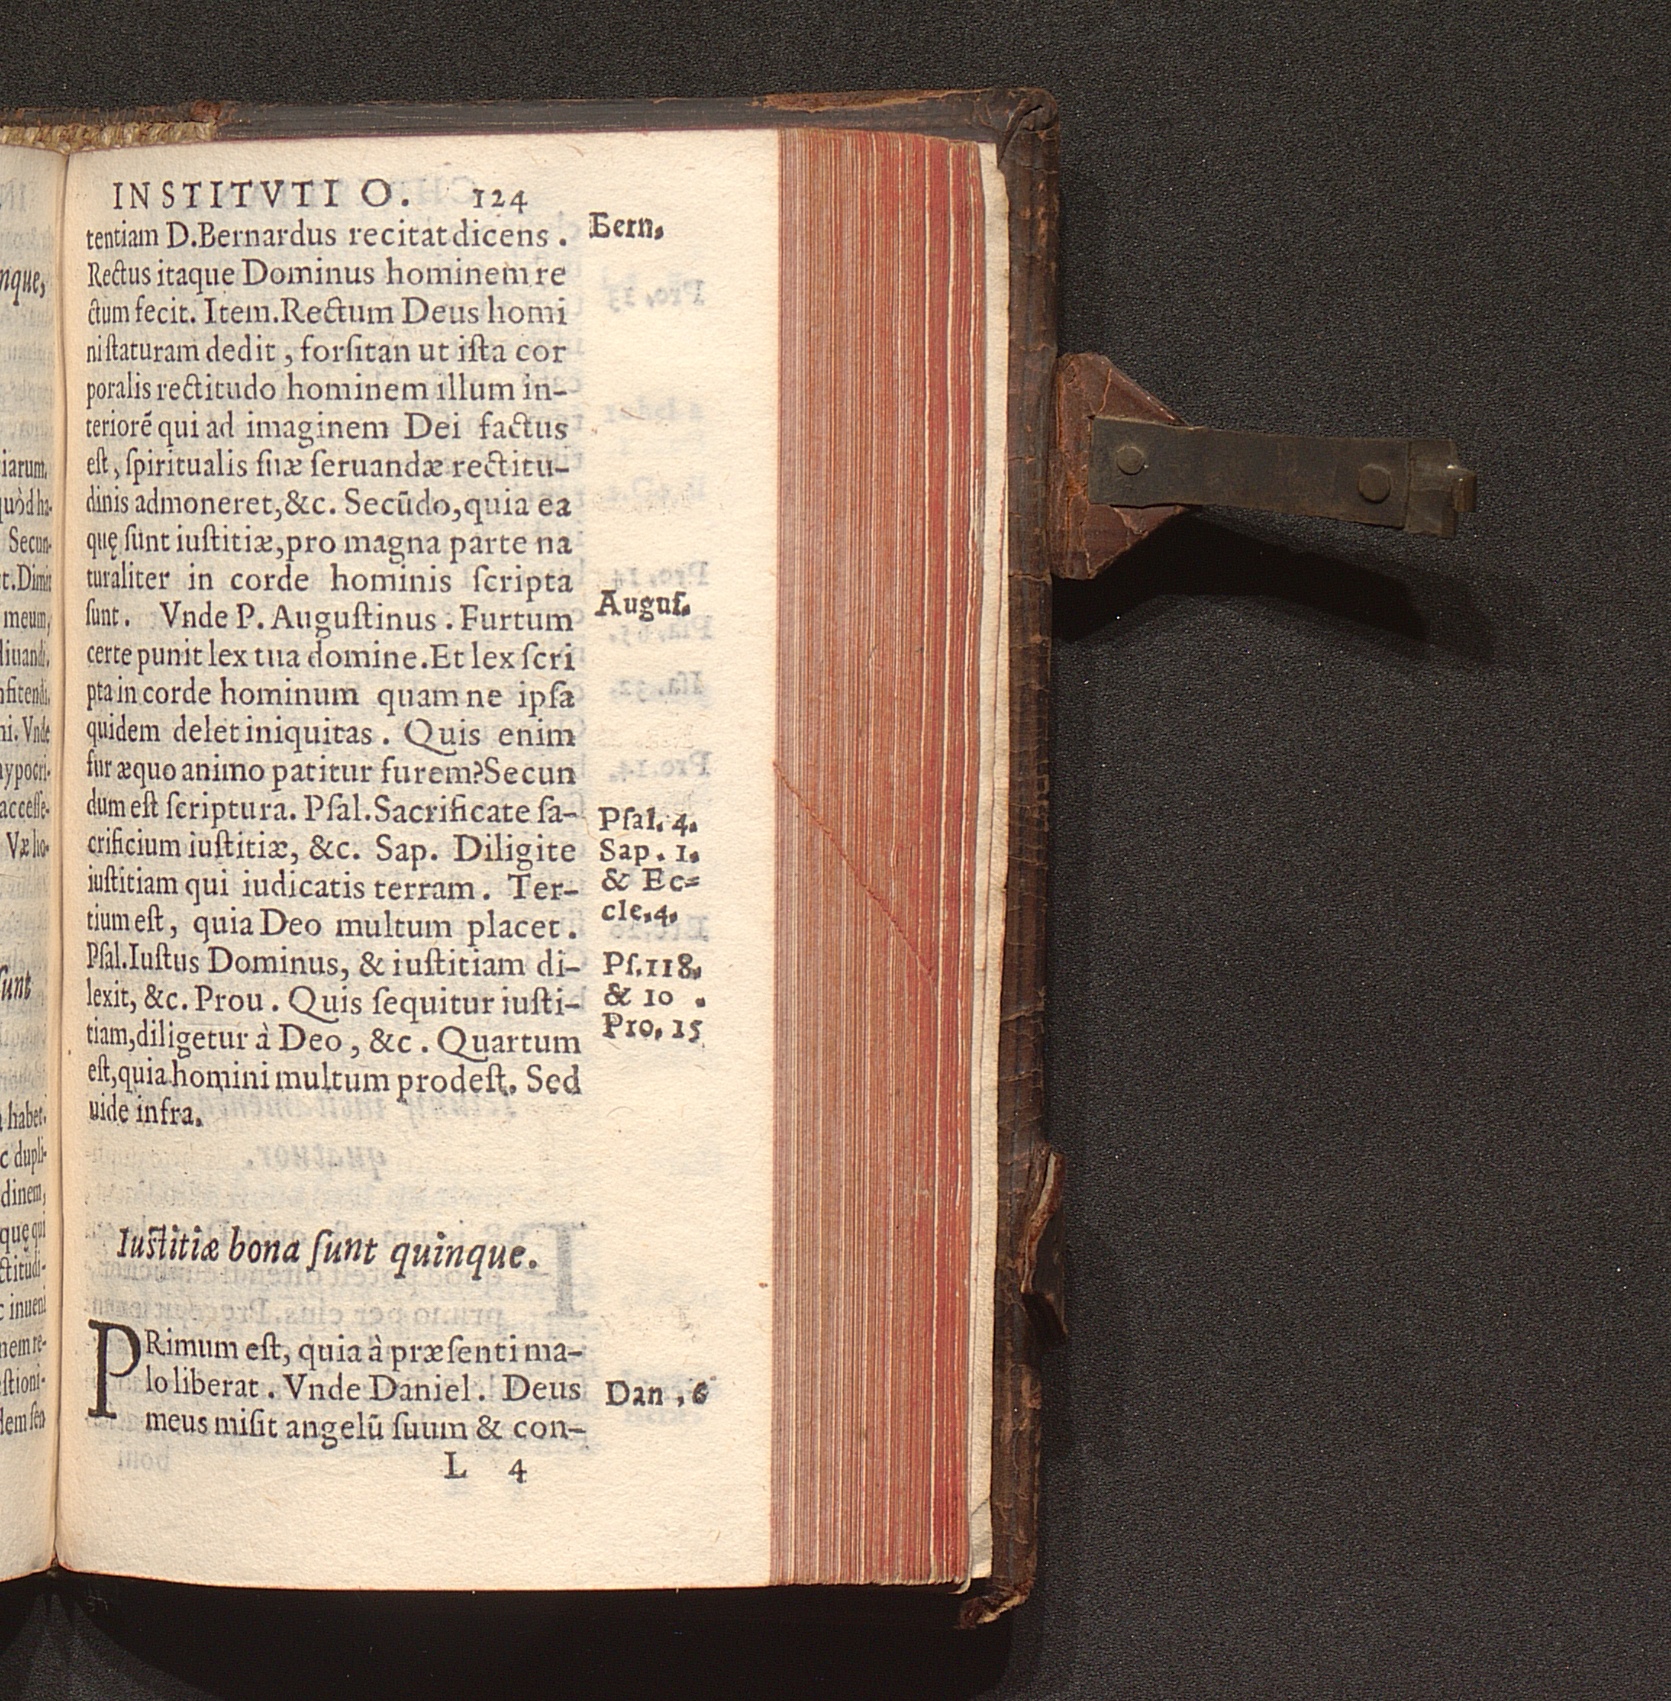 INSTITVTIO. 124
tentiam D.Bernardus recitat dicens.
Bern.
Rectus itaque Dominus hominem re
ctum fecit. Item. Rectum Deus homi
ni ſtaturam dedit, forſitan ut iſta cor
poralis rectitudo hominem illum in-
teriorē qui ad imaginem Dei factus
eſt, ſpiritualis ſuæ ſeruandæ rectitu-
dinis admoneret, &c. Secūdo, quia ea
quę ſunt iuſtitiæ, pro magna parte na
turaliter in corde hominis ſcripta
ſunt. Vnde P. Auguſtinus. Furtum
Auguſ.
certe punit lex tua domine. Et lex ſcri
pta in corde hominum quam ne ipſa
quidem delet iniquitas. Quis enim
fur æquo animo patitur furem? Secun
dum eſt ſcriptura. Pſal. Sacrificate ſa-
Pſal. 4.
crificium iuſtitiæ, &c. Sap. Diligite
Sap. 1.
iuſtitiam qui iudicatis terram. Ter-
& Ec-
tium eſt, quia Deo multum placet.
cle.4.
Pſal. Iuſtus Dominus, & iuſtitiam di-
Pſ.118.
lexit, &c. Prou. Quis ſequitur iuſti-
& 10.
tiam, diligetur à Deo, &c. Quartum
Pro. 15
eſt, quia homini multum prodeſt. Sed
uide infra.
Iuſtitiæ bona ſunt quinque.
PRimum eſt, quia à præſenti ma-
lo liberat. Vnde Daniel. Deus
Dan. 6
meus miſit angelū ſuum & con-
L 4